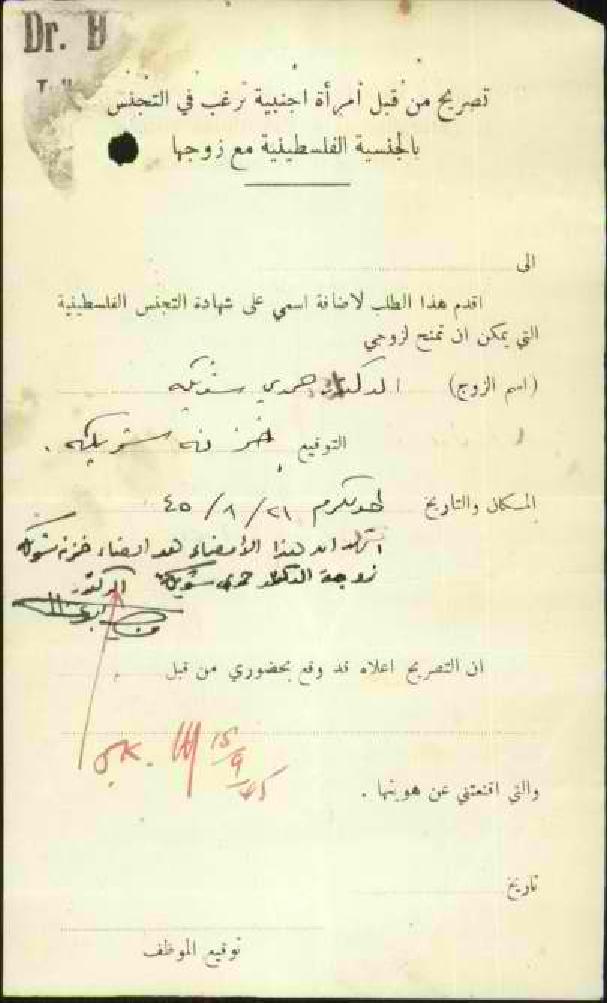 Dr.
تصريح من قبل امرأة اجنبية ترغب في التجنس
بالجنسية الفلسطينية مع زوجها
الى
اقدم هذا الطلب لاضافة اسمي على شهادة التجنس الفلسطينية
التي يمكن ان تمنح لزوجي
(اسم الزوج) الدكتور حمدي
التوقيع
المكان والتاريخ طولكرم ٢١ / ٨ / ٤٥
اشهد ان هذا الأمضاء هو امضاء
زوجة الدكتور حمدي الدكتور
ان التصريح اعلاه قد وقع بحضوري من قبل
O.K. 15/9/45
والتي اقنعتني عن هويتها .
تاريخ
توقيع الموظف